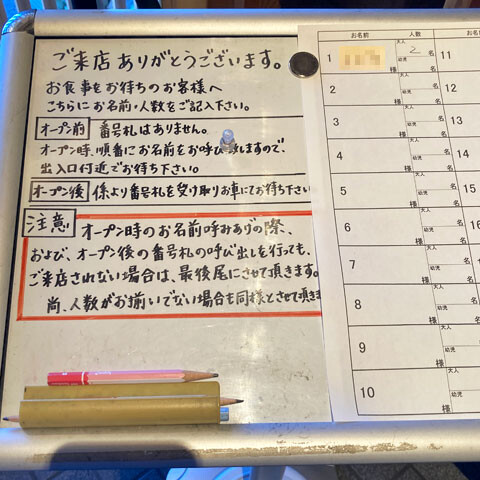 ご来店ありがとうございます。
お食事をお待ちのお客様へ
こちらにお名前・人数をご記入下さい。
オープン前 番号札はありません。
オープン時、順番にお名前をお呼び致しますので、
出入口付近でお待ち下さい。
オープン後 係より番号札を受け取りお車にてお待ち下さい
注意 オープン時のお名前呼みあげの際、
および、オープン後の番号札の呼び出しを行っても、
ご来店されない場合は、最後尾にさせて頂きます。
尚、人数がお揃いでない場合も同様とさせて頂きま
お名前 人数
1 様 大人 2 名 幼児 名
2 様 大人 名 幼児 名
3 様 大人 名 幼児 名
4 様 大人 名 幼児 名
5 様 大人 名 幼児 名
6 様 大人 名 幼児 名
7 様 大人 名 幼児 名
8 様 大人 名 幼児 名
9 様 大人 名 幼児 名
10 様 大人 幼児
お名
11
12
13
14
15
16